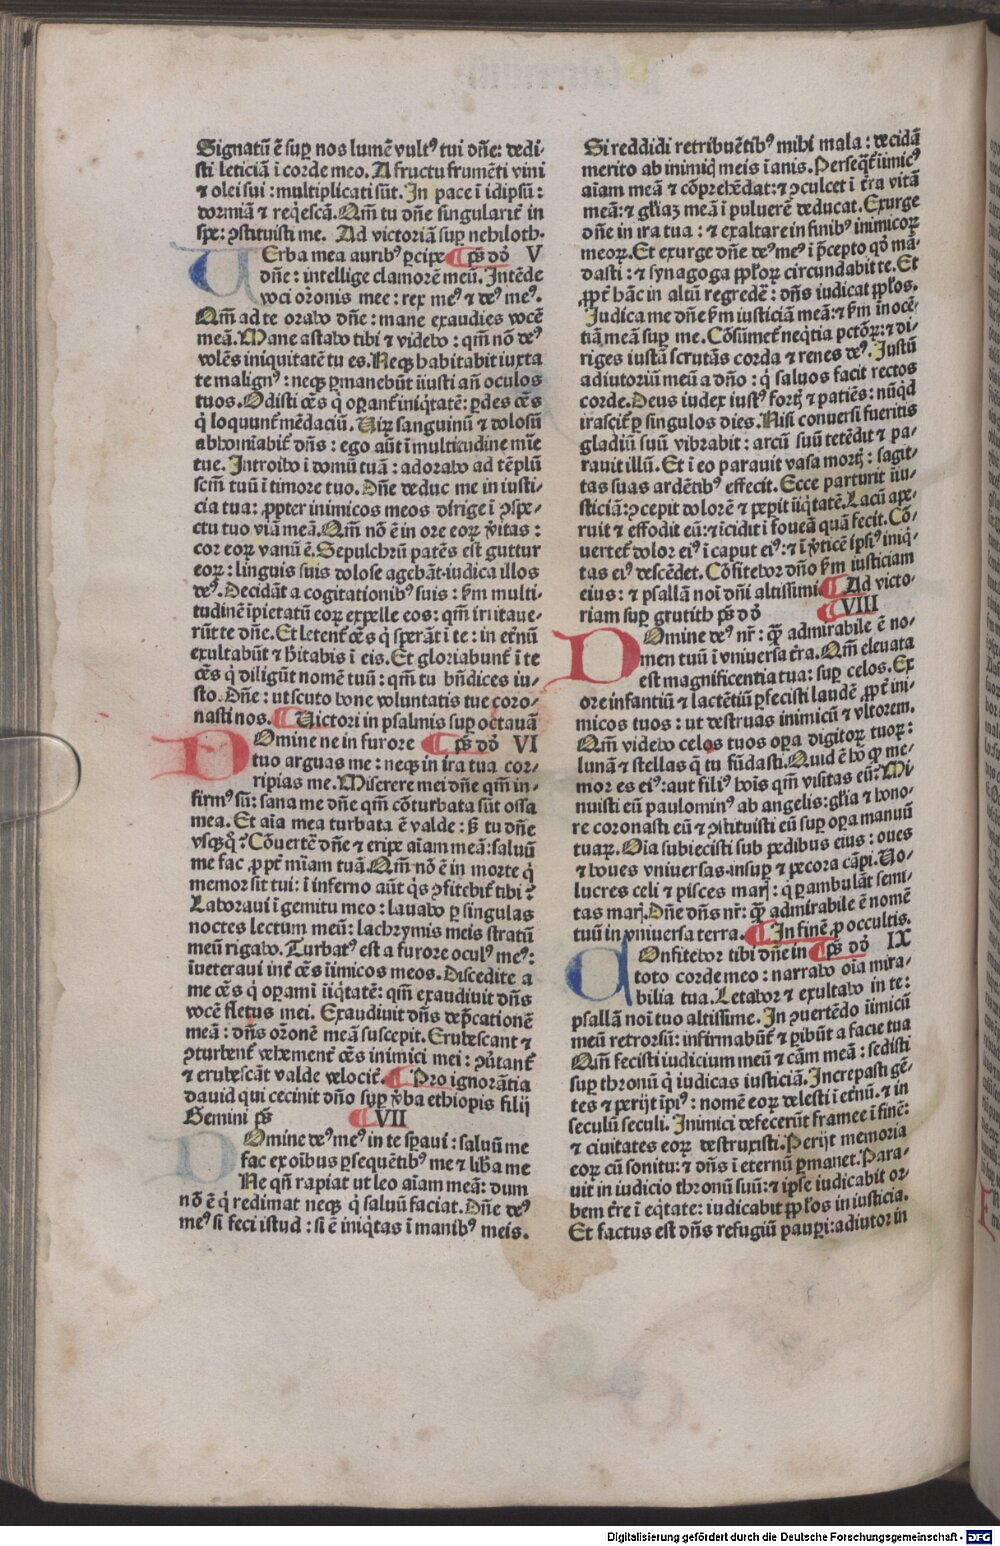 Signatū ē suꝑ nos lumē vultꝰ tui dn̄e: dedi-
sti leticiā ī corde meo. A fructu frumēti vini
⁊ olei sui: multiplicati sūt. In pace ī idipsū:
dormiā ⁊ reqͥescā. Qm̄ tu dn̄e singularit̄ in
spe: ꝯstituisti me. Ad victoriā suꝑ nehiloth.
VErba mea auribꝰ ꝑcipe ¶ ps̄ dd̓ V
dn̄e: intellige clamorē meū. Intēde
voci or̄onis mee: rex meꝰ ⁊ deꝰ meꝰ.
Qm̄ ad te orabo dn̄e: mane exaudies vocē
meā. Mane astabo tibi ⁊ videbo: qm̄ nō deꝰ
volēs iniquitatē tu es. Neqꝫ habitabit iuxta
te malignꝰ: neqꝫ ꝑmanebūt iiusti an̄ oculos
tuos. Odisti oēs qͥ oꝑant̄ iniqͥtatē: ꝑdes oēs
qͥ loquunt̄ mēdaciū. Viꝝ sanguinū ⁊ dolosū
abhoīabit̄ dn̄s: ego aūt ī multitudine mīe
tue. Introibo ī domū tuā: adorabo ad tēplū
scm̄ tuū ī timore tuo. Dn̄e deduc me in iusti-
cia tua: ꝓpter inimicos meos dirige ī ꝯspe-
ctu tuo viā meā. Qm̄ nō ē in ore eoꝝ v̓itas:
cor eoꝝ vanū ē. Sepulchrū patēs est guttur
eoꝝ: linguis suis dolose agebāt. iudica illos
deꝰ. Decidāt a cogitationibꝰ suis: ẜm multi-
tudinē īpietatū eoꝝ expelle eos: qm̄ irritaue-
rūt te dn̄e. Et letent̄ oēs qͥ sperāt ī te: in et̓nū
exultabūt ⁊ hītabis ī eis. Et gloriabunt̄ ī te
oēs qͥ diligūt nomē tuū: qm̄ tu bn̄dices iu-
sto. Dn̄e: ut scuto bone voluntatis tue coro-
nasti nos. ¶ Victori in psalmis suꝑ octauā
DOmine ne in furore ¶ ps̄ dd̓ VI
tuo arguas me: neqꝫ in ira tua cor-
ripias me. Miserere mei dn̄e qm̄ in-
firmꝰ sū: sana me dn̄e qm̄ cōturbata sūt ossa
mea. Et aīa mea turbata ē valde: sꝫ tu dn̄e
vsqꝫqͦ? Cōuertē dn̄e ⁊ eripe aīam meā: saluū
me fac ꝓpt̄ mīam tuā. Qm̄ nō ē in morte qͥ
memor sit tui: ī inferno aūt qͥs ꝯfitebit̄ tibi?
Laboraui ī gemitu meo: lauabo ꝑ singulas
noctes lectum meū: lachrymis meis stratū
meū rigabo. Turbatꝰ est a furore oculꝰ meꝰ:
īueteraui int̄ oēs iimicos meos. Discedite a
me oēs qͥ oꝑami īiqͥtatē: qm̄ exaudiuit dn̄s
vocē fletus mei. Exaudiuit dn̄s dep̄cationē
meā: dn̄s or̄onē meā suscepit. Erubescant ⁊
ꝯturbent̄ vehement̄ oēs inimici mei: ꝯu̓tant̄
⁊ erubescāt valde velocit̄. ¶ Pro ignorātia
dauid qui cecinit dn̄o suꝑ v̓ba ethiopis filij
Gemini ps̄ ¶ VII
DOmine deꝰ meꝰ in te sꝑaui: saluū me
fac ex oībus ꝑsequētibꝰ me ⁊ lib̓a me
Ne qn̄ rapiat ut leo aīam meā: dum
nō ē qͥ redimat neqꝫ qͥ saluū faciat. Dn̄e deꝰ
meꝰ si feci istud: si ē iniqͥtas ī manibꝰ meis.
Si reddidi retribuētibꝰ mihi mala: decidā
merito ab inimicͥ meis īanis. Perseqͣt̄ iimicꝰ
aīam meā ⁊ cōprehēdat: ⁊ ꝯculcet ī t̄ra vitā
meā: ⁊ gl̄iaꝫ meā ī puluerē deducat. Exurge
dn̄e in ira tua: ⁊ exaltare in finibꝰ inimicoꝝ
meoꝝ. Et exurge dn̄e deꝰ meꝰ ī p̄cepto qd̓ mā-
dasti: ⁊ synagoga ppl̓oꝝ circundabit te. Et
ꝓpt̄ hāc in altū regredē: dn̄s iudicat ppl̓os.
Iudica me dn̄e ẜm iusticiā meā: ⁊ ẜm īnocē-
tiā meā suꝑ me. Cōsumet̄ neqͥtia pctōꝝ: ⁊ di-
riges iustū scrutās corda ⁊ renes deꝰ. Iustū
adiutoriū meū a dn̄o: qͥ saluos facit rectos
corde. Deus iudex iustꝰ fortꝭ ⁊ patiēs: nūqͥd
irascit̄ ꝑ singulos dies. Nisi conuersi fueritis
gladiū suū vibrabit: arcū suū tetēdit ⁊ pa-
rauit illū. Et ī eo parauit vasa mortꝭ: sagit-
tas suas ardētibꝰ effecit. Ecce parturit īiu-
sticiā: ꝯcepit dolorē ⁊ peꝑit īiqͥtatē. Lacū ape-
ruit ⁊ effodit eū: ⁊ īcidit ī foueā quā fecit. Cō-
uertet̄ dolor eiꝰ ī caput eiꝰ: ⁊ ī v̓ticē ipsiꝰ iniqͥ-
tas eiꝰ descēdet. Cōfitebor dn̄o ẜm iusticiam
eius: ⁊ psallā noī dn̄i altissimi ¶ Ad victo-
riam suꝑ gittith ps̄ dd̓ ¶ VIII
DOmine deꝰ nr̄: qͣꝫ admirabile ē no-
men tuū ī vniuersa t̄ra. Qm̄ eleuata
est magnificentia tua: suꝑ celos. Ex
ore infantiū ⁊ lactētiū ꝑfecisti laudē ꝓpt̄ ini-
micos tuos: ut destruas inimicū ⁊ vltorem.
Qm̄ videbo celos tuos oꝑa digitoꝝ tuoꝝ:
lunā ⁊ stellas qͣ tu fūdasti. Quid ē hō qͥ me-
mor es eiꝰ: aut filiꝰ hoīs qm̄ visitas eū? Mi-
nuisti eū paulominꝰ ab angelis: gl̄ia ⁊ hono-
re coronasti eū ⁊ ꝯstituisti eū suꝑ oꝑa manuū
tuaꝝ. Oīa subiecisti sub pedibus eius: oues
⁊ boues vniuersas. insuꝑ ⁊ pecora cāpi. Vo-
lucres celi ⁊ pisces marꝭ: qͥ ꝑambulāt semi-
tas marꝭ. Dn̄e dn̄s nr̄: qͣꝫ admirabile ē nomē
tuū in vniuersa terra. ¶ In finē ꝓ occultis.
COnfitebor tibi dn̄e in ¶ ps̄ dd̓ IX
toto corde meo: narrabo oīa mira-
bilia tua. Letabor ⁊ exultabo in te:
psallā noī tuo altissime. In ꝯuertēdo iimicū
meū retrorsū: infirmabūt̄ ⁊ ꝑibūt a facie tua
Qm̄ fecisti iudicium meū ⁊ cām meā: sedisti
suꝑ thronū qͥ iudicas iusticiā. Increpasti gē-
tes ⁊ perijt īpiꝰ: nomē eoꝝ delesti ī et̓nū. ⁊ in
seculū seculi. Inimici defecerūt framee ī finē:
⁊ ciuitates eoꝝ destruxisti. Perijt memoria
eoꝝ cū sonitu: ⁊ dn̄s ī eternū ꝑmanet. Para-
uit in iudicio thronū suū: ⁊ ipse iudicabit or-
bem t̄re ī eqͥtate: iudicabit ppl̓os in iusticia.
Et factus est dn̄s refugiū pauꝑi: adiutor in
Digitalisierung gefördert durch die Deutsche Forschungsgemeinschaft - DFG